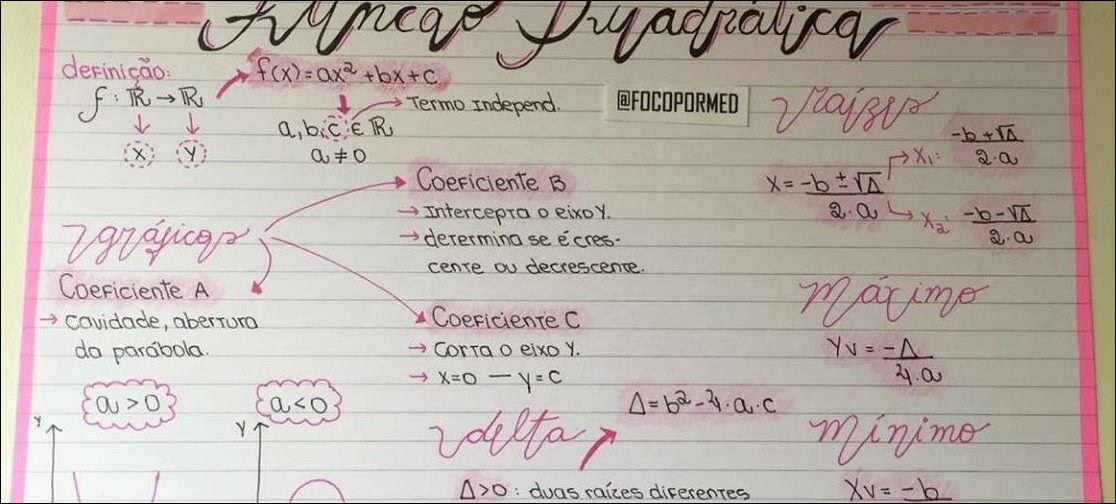 Função Quadrática
definição:
f: ℝ → ℝ
x y
f(x)=ax²+bx+c
Termo Independ.
a, b, c ∈ ℝ
a ≠ 0
@FOCOPORMED
raízes
x = -b ± √Δ / 2·a
x₁: -b + √Δ / 2·a
x₂: -b - √Δ / 2·a
gráficos
Coeficiente B
→ Intercepta o eixo Y.
→ determina se é cres-
cente ou decrescente.
Coeficiente A
→ cavidade, abertura
da parábola.
Coeficiente C
→ Corta o eixo Y.
→ x=0 — y=c
a > 0
a < 0
Y
Y
máximo
Yv = -Δ / 4·a
delta
Δ = b² - 4·a·c
Δ>0: duas raízes diferentes
mínimo
Xv = -b